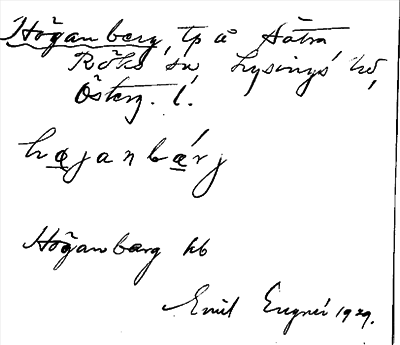 Höganberg, tp å Sätra
Röks sn, Lysings hd,
Österg. l.
højanbærj
Höganbærg kb
Emil Engnér 1929.